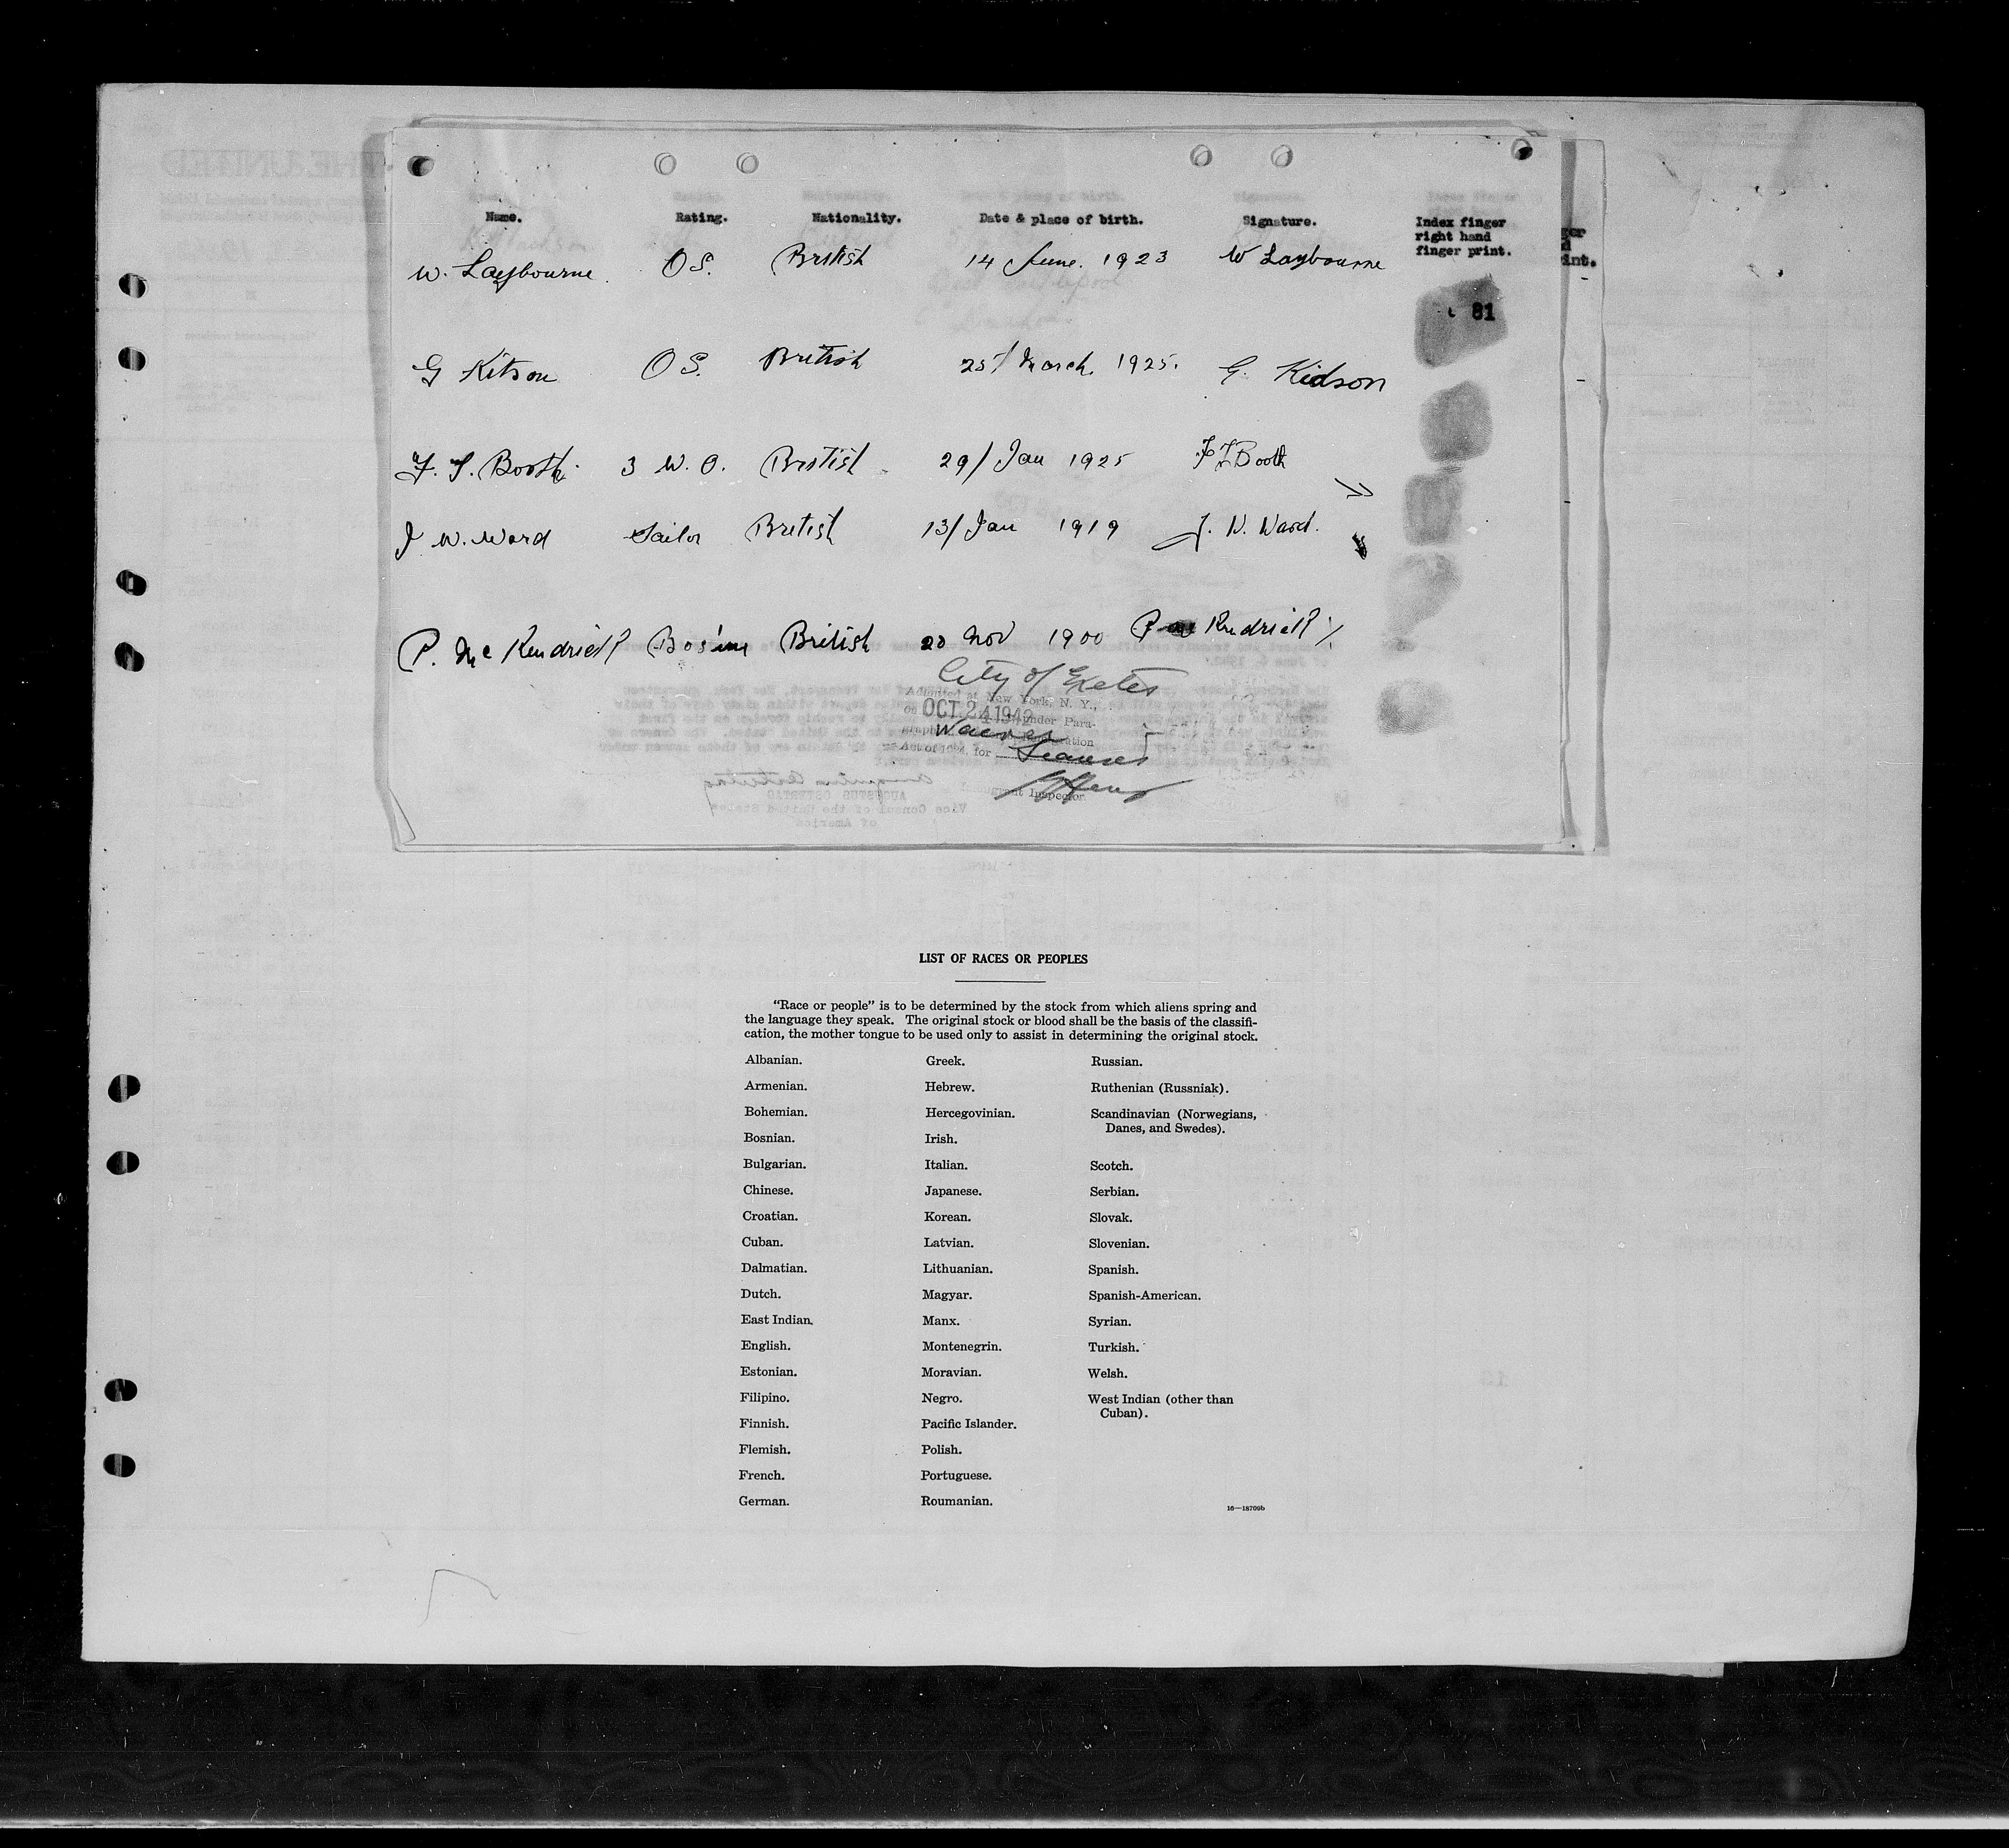 Name. Rating. Nationality. Date & place of birth. Signature. Index finger
right hand
finger print.
W. Laybourne. O S. British 14 June. 1923 W Laybourne
81
G Kitson O S. British 25/ March. 1925. G. Kidson
F. T. Booth. 3 W. O. British 29/ Jan 1925 F T Booth
J W. Ward Sailor British 13/ Jan 1919 J. W. Ward.
P. Mc Kendrick Bos'un British 20 Nov 1900 P Mc Kendrick
City of Exeter
Admitted at New York, N. Y.,
on OCT 24 1942 under Para-
Act of 1924, for
Immigrant Inspector
AUGUSTUS OSTERTAG
Vice Consul of the United States
of America
LIST OF RACES OR PEOPLES
“Race or people” is to be determined by the stock from which aliens spring and
the language they speak. The original stock or blood shall be the basis of the classifi-
cation, the mother tongue to be used only to assist in determining the original stock.
Albanian.
Armenian.
Bohemian.
Bosnian.
Bulgarian.
Chinese.
Croatian.
Cuban.
Dalmatian.
Dutch.
East Indian.
English.
Estonian.
Filipino.
Finnish.
Flemish.
French.
German.
Greek.
Hebrew.
Hercegovinian.
Irish.
Italian.
Japanese.
Korean.
Latvian.
Lithuanian.
Magyar.
Manx.
Montenegrin.
Moravian.
Negro.
Pacific Islander.
Polish.
Portuguese.
Roumanian.
Russian.
Ruthenian (Russniak).
Scandinavian (Norwegians,
Danes, and Swedes).
Scotch.
Serbian.
Slovak.
Slovenian.
Spanish.
Spanish-American.
Syrian.
Turkish.
Welsh.
West Indian (other than
Cuban).
16—18709b